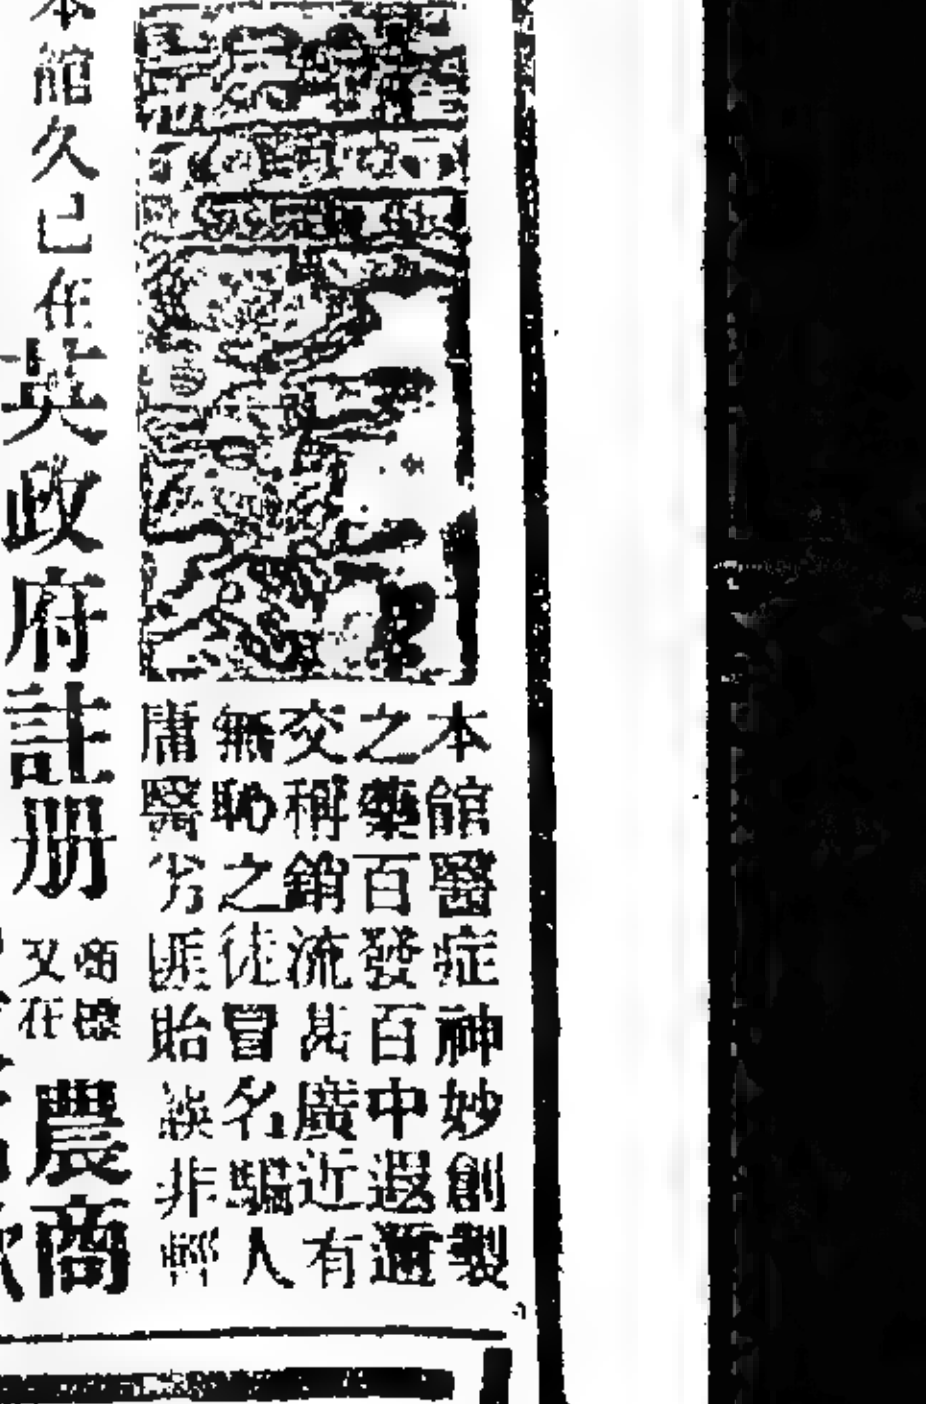 本館醫症神妙創製
之藥百發百中遐邇
交稱銷流甚廣近有
無恥之徒冒名騙人
庸醫劣匪貽誤非輕
本館久已在英政府註册
商標
又在
農商